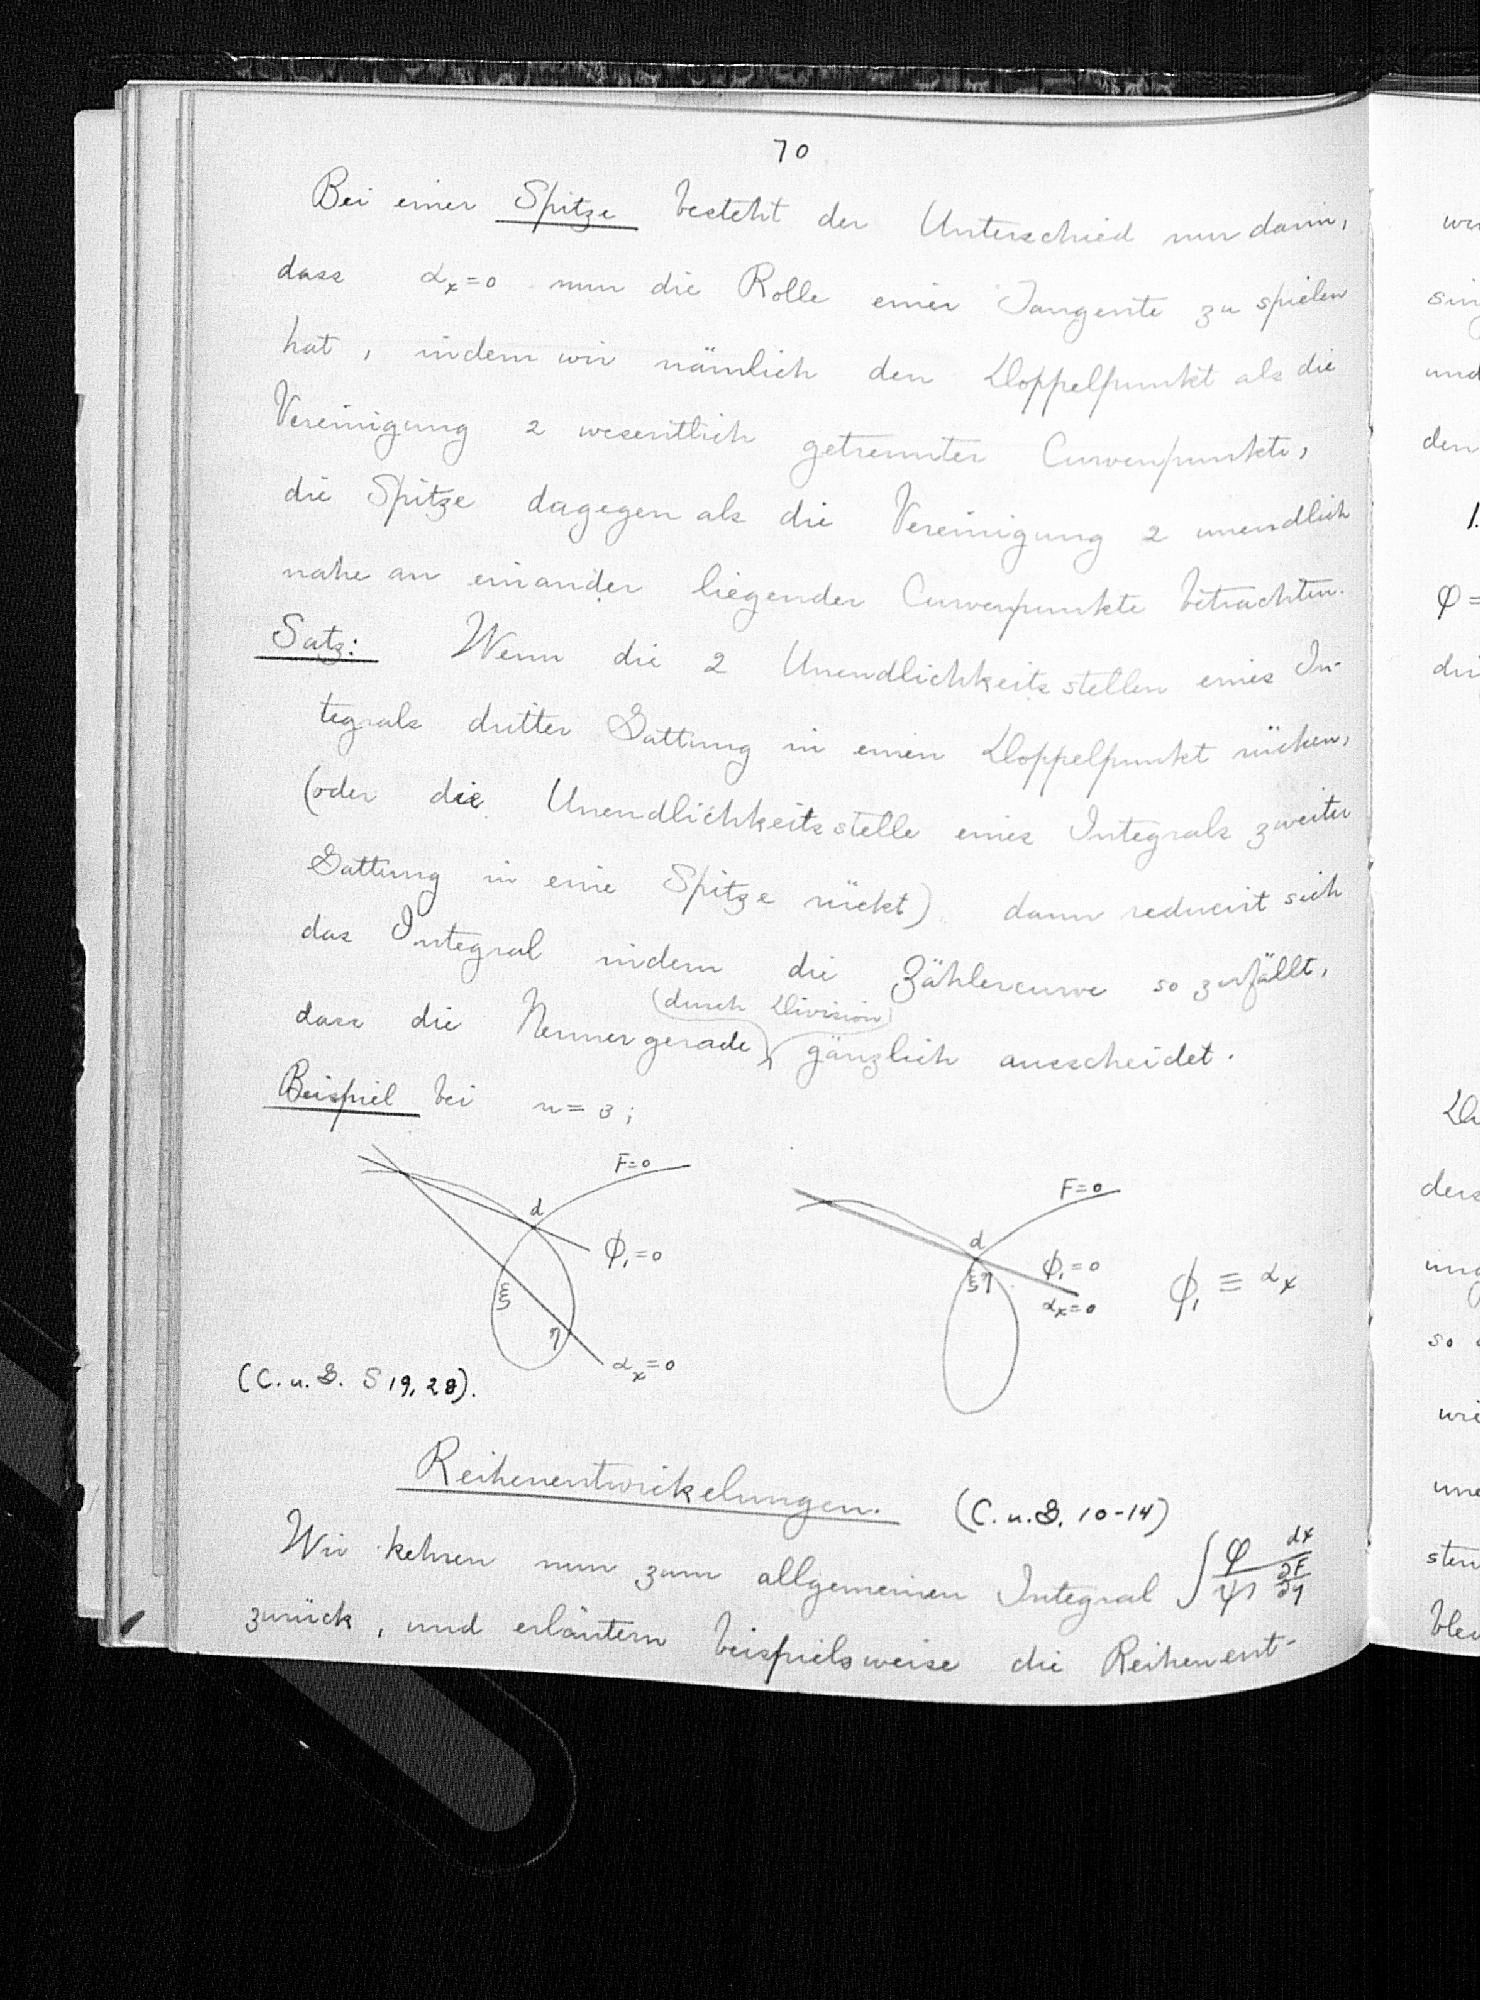 70
Bei einer Spitze besteht der Unterschied nur darin,
dass αₓ=0 nun die Rolle einer Tangente zu spielen
hat, indem wir nämlich den Doppelpunkt als die
Vereinigung 2 wesentlich getrennter Curvenpunkte,
die Spitze dagegen als die Vereinigung 2 unendlich
nahe an einander liegender Curvenpunkte betrachten.
Satz: Wenn die 2 Unendlichkeitsstellen eines In-
tegrals dritter Gattung in einen Doppelpunkt rücken,
(oder die Unendlichkeitsstelle eines Integrals zweiter
Gattung in eine Spitze rückt) dann reducirt sich
das Integral indem die Zählercurve so zerfällt,
(durch Division)
dass die Nennergerade gänzlich ausscheidet.
Beispiel bei n=3;
F=0
d
ϕ₁=0
ξ
η
αₓ=0
F=0
d
ξη
ϕ₁=0
αₓ=0
ϕ₁ ≡ αₓ
(C. u. G. S 19, 28).
Reihenentwickelungen. (C. u. G. 10-14)
Wir kehren nun zum allgemeinen Integral ∫ φ/ψ dx/(∂F/∂y)
zurück, und erläutern beispielsweise die Reihenent-
wer
sing
und
den
1.
φ=
ders
ung
so
wie
une
sten